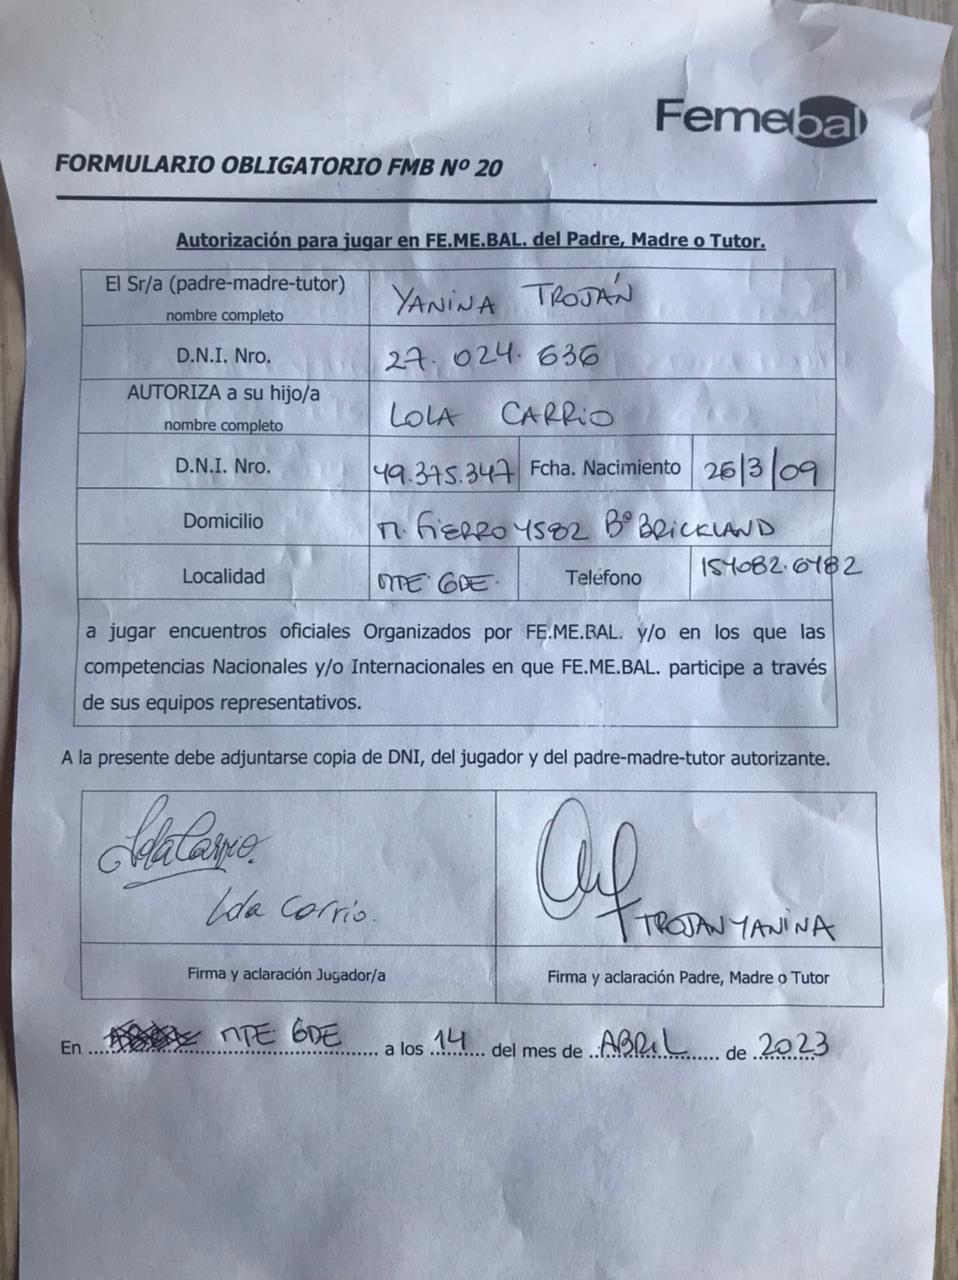 Femebal
FORMULARIO OBLIGATORIO FMB Nº 20
Autorización para jugar en FE.ME.BAL. del Padre, Madre o Tutor.
El Sr/a (padre-madre-tutor) YANINA TROJÁN
nombre completo
D.N.I. Nro. 27.024.636
AUTORIZA a su hijo/a LOLA CARRIO
nombre completo
D.N.I. Nro. 49.375.347 Fcha. Nacimiento 26/3/09
Domicilio M. FIERRO 4582 Bº BRICKLAND
Localidad MTE GDE. Teléfono 154082.6482
a jugar encuentros oficiales Organizados por FE.ME.BAL. y/o en los que las
competencias Nacionales y/o Internacionales en que FE.ME.BAL. participe a través
de sus equipos representativos.
A la presente debe adjuntarse copia de DNI, del jugador y del padre-madre-tutor autorizante.
Lola Carrio.
Lola Carrio. TROJAN YANINA
Firma y aclaración Jugador/a Firma y aclaración Padre, Madre o Tutor
En MTE GDE a los 14 del mes de ABRIL de 2023